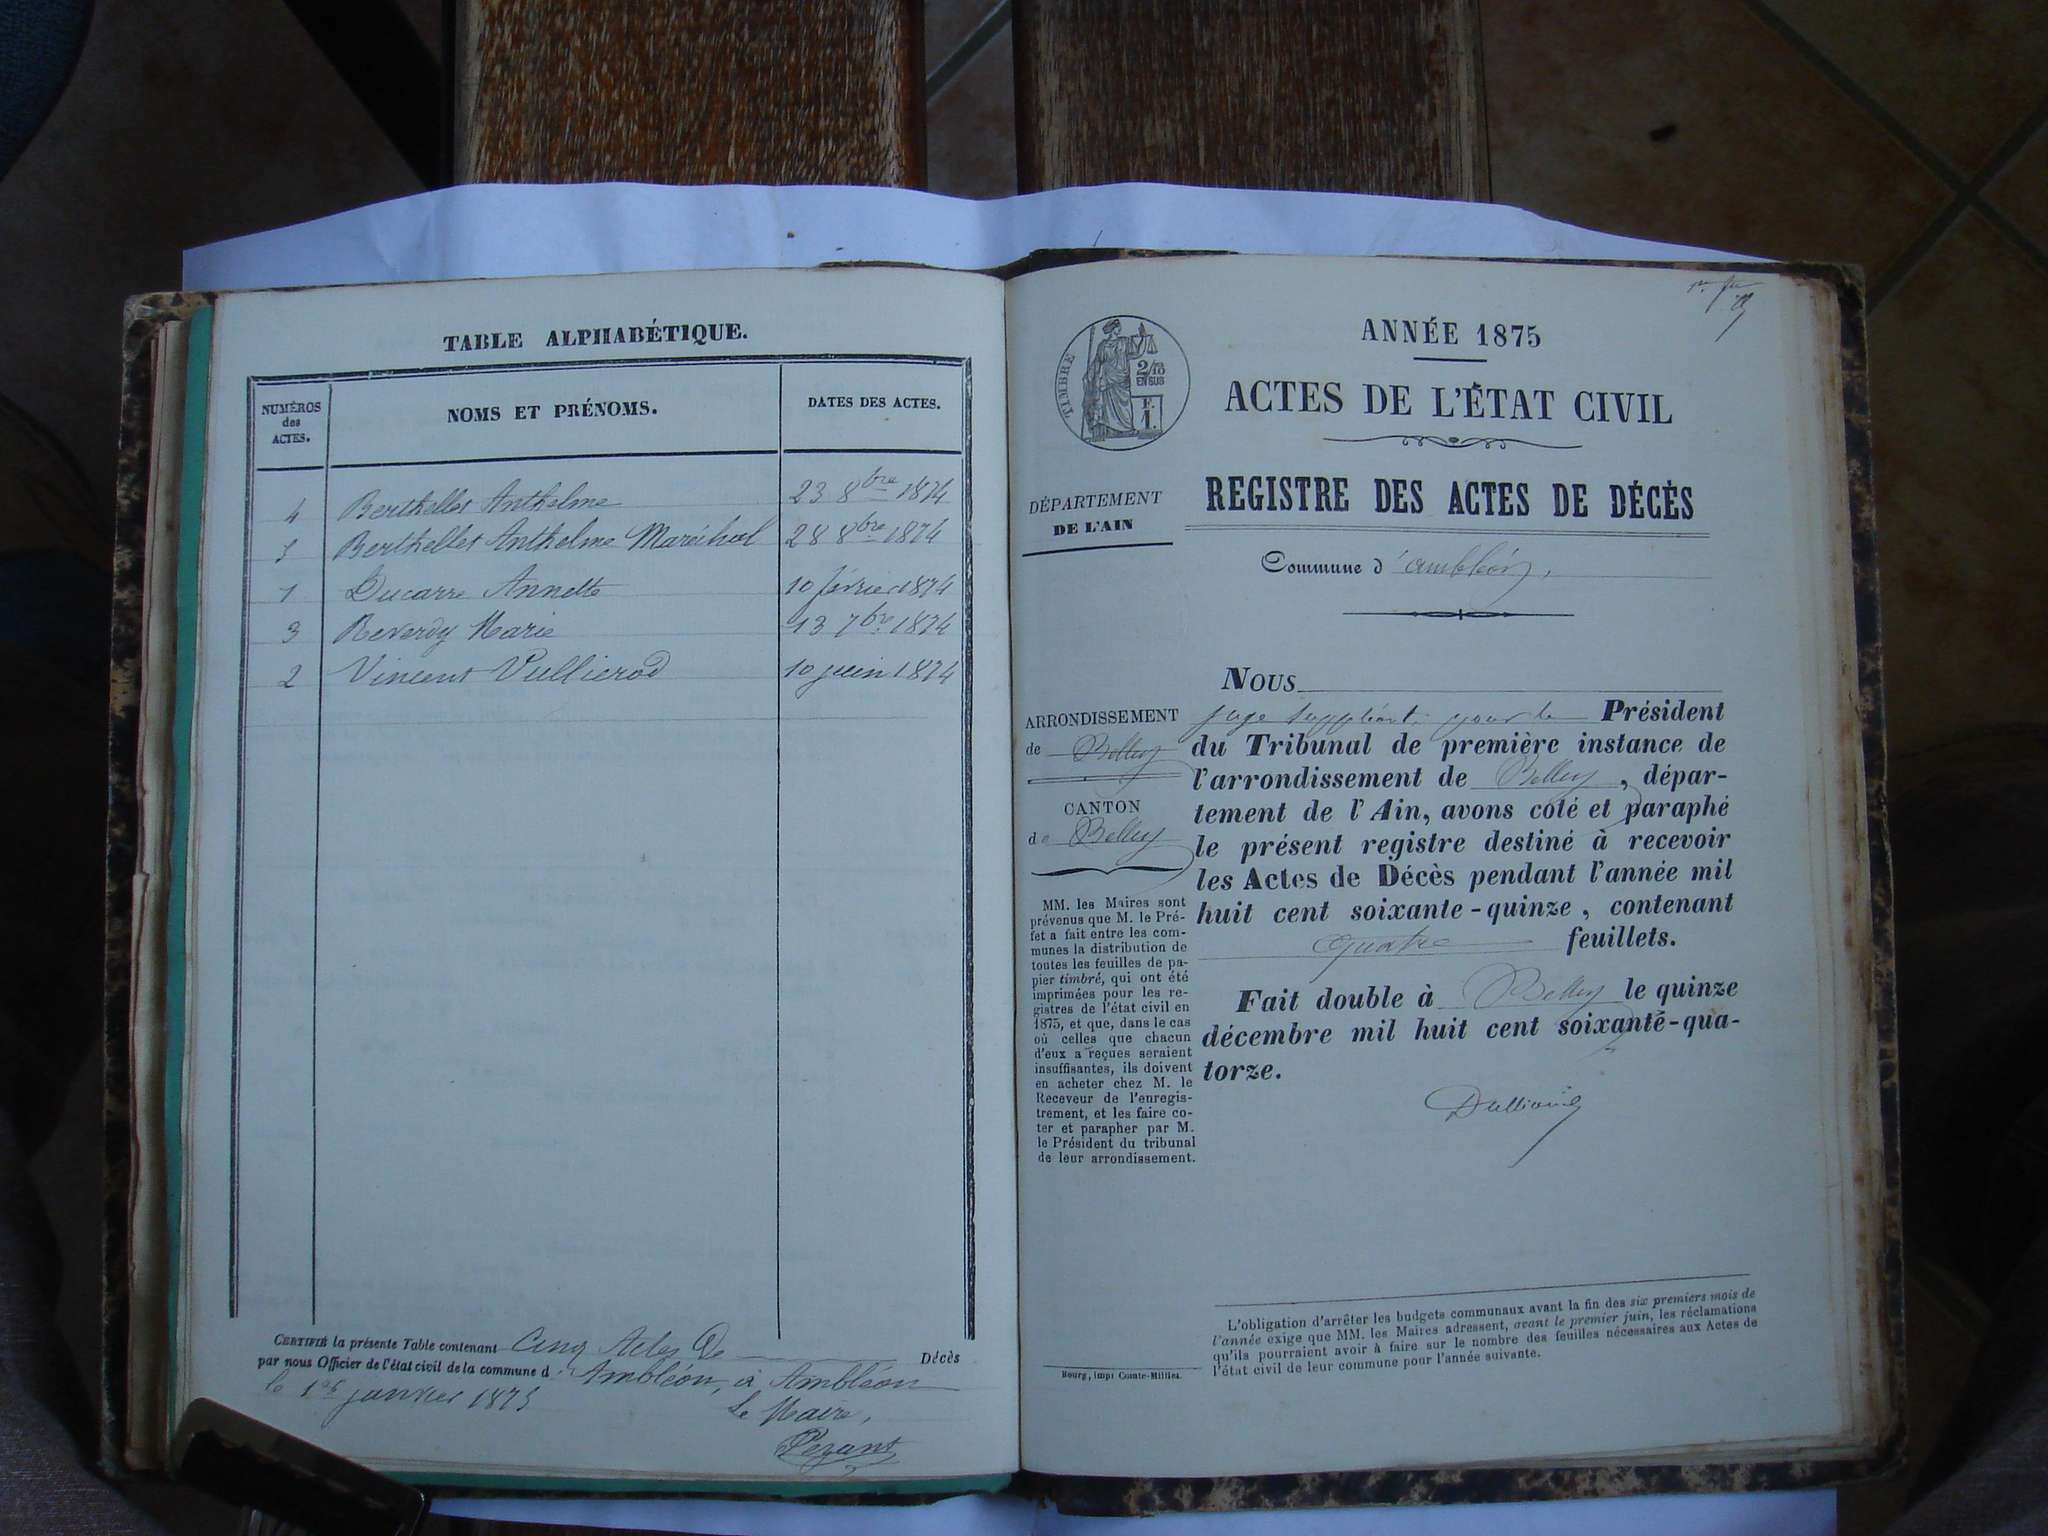 TABLE ALPHABÉTIQUE.
NUMÉROS
des
ACTES.
NOMS ET PRÉNOMS.
DATES DES ACTES.
4 Berthellet Anthelme 23 8bre 1874
5 Berthellet Anthelme Maréchal 28 8bre 1874
1 Ducarre Annette 10 février 1874
3 Reverdy Marie 13 7bre 1874
2 Vincent Vullierod 10 juin 1874
CERTIFIÉ la présente Table contenant Cinq Actes De Décès
par nous Officier de l'état civil de la commune d'Ambléon, à Ambléon
le 1er janvier 1875
Le Maire,
Pezant
TIMBRE
2/10
EN SUS
1F.
ANNÉE 1875
ACTES DE L'ÉTAT CIVIL
REGISTRE DES ACTES DE DÉCÈS
Commune d'ambléon,
DÉPARTEMENT
DE L'AIN
ARRONDISSEMENT
de Belley
CANTON
de Belley
MM. les Maires sont
prévenus que M. le Pré-
fet a fait entre les com-
munes la distribution de
toutes les feuilles de pa-
pier timbré, qui ont été
imprimées pour les re-
gistres de l'état civil en
1875, et que, dans le cas
où celles que chacun
d'eux a reçues seraient
insuffisantes, ils doivent
en acheter chez M. le
Receveur de l'enregis-
trement, et les faire co-
ter et parapher par M.
le Président du tribunal
de leur arrondissement.
NOUS
juge suppléant, pour le Président
du Tribunal de première instance de
l'arrondissement de Belley, dépar-
tement de l'Ain, avons coté et paraphé
le présent registre destiné à recevoir
les Actes de Décès pendant l'année mil
huit cent soixante-quinze, contenant
quatre feuillets.
Fait double à Belley le quinze
décembre mil huit cent soixante-qua-
torze.
L'obligation d'arrêter les budgets communaux avant la fin des six premiers mois de
l'année exige que MM. les Maires adressent, avant le premier juin, les réclamations
qu'ils pourraient avoir à faire sur le nombre des feuilles nécessaires aux Actes de
l'état civil de leur commune pour l'année suivante.
Bourg, impr Comte-Milliet.